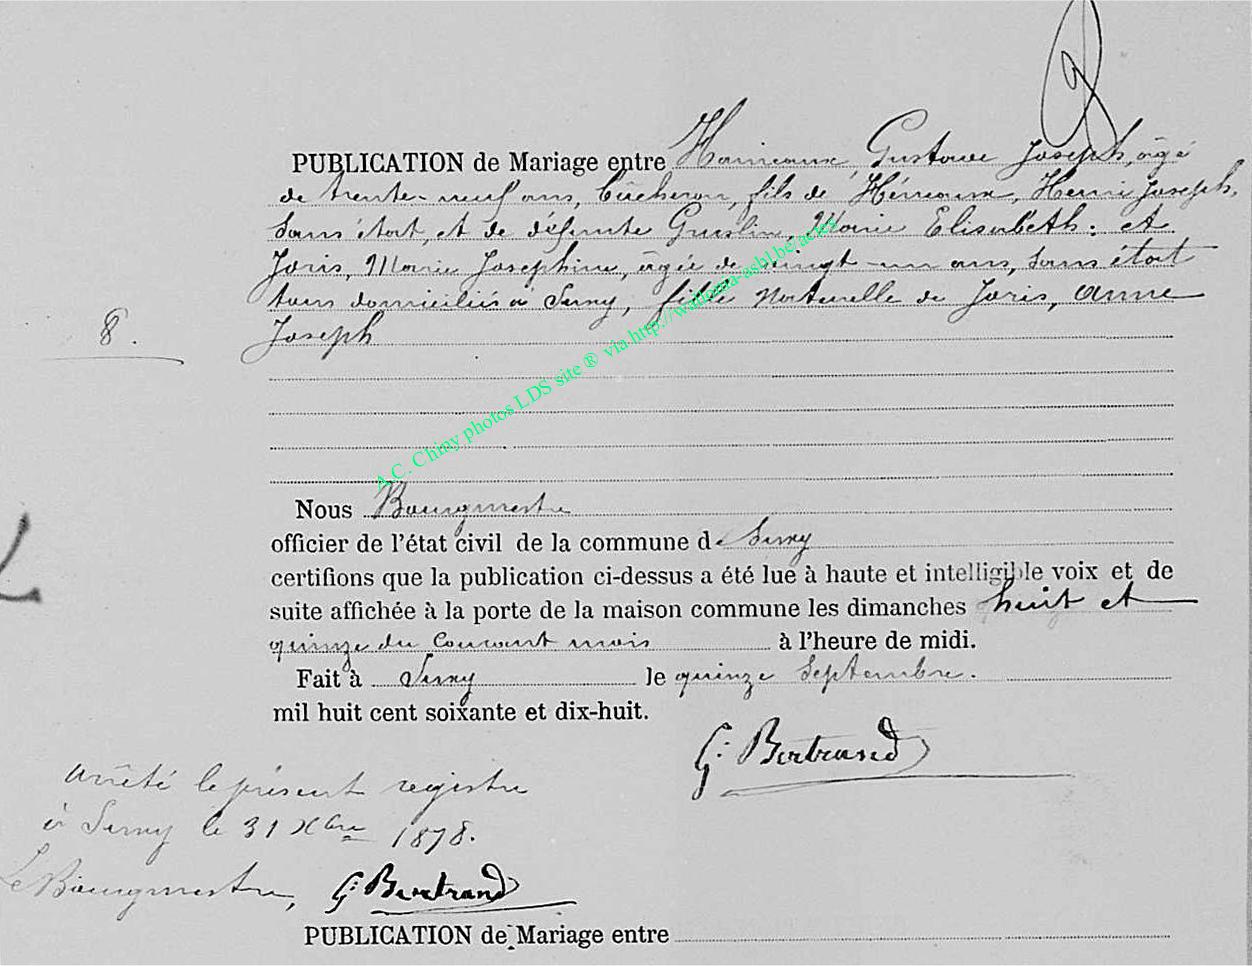 PUBLICATION de Mariage entre Hainaux, Gustave Joseph, âgé
de trente-neuf ans, bûcheron, fils de Hénaux, Henri Joseph,
sans état, et de défunte Guislin, Marie Elisabeth: et
Joris, Marie Josephine, âgée de vingt-un ans, sans état
tous domiciliés à Suxy, fille naturelle de Joris, Anne
8.
Joseph
A.C. Chiny photos LDS site ® via http://wallonia-asbl.be/actes
Nous Bourgmestre
officier de l'état civil de la commune de Suxy
certifions que la publication ci-dessus a été lue à haute et intelligible voix et de
suite affichée à la porte de la maison commune les dimanches huit et
quinze du courant mois à l'heure de midi.
Fait à Suxy le quinze Septembre.
mil huit cent soixante et dix-huit.
G. Bertrand
Arrêté le présent registre
à Suxy le 31 Xbre 1878.
Le Bourgmestre, G. Bertrand
PUBLICATION de Mariage entre